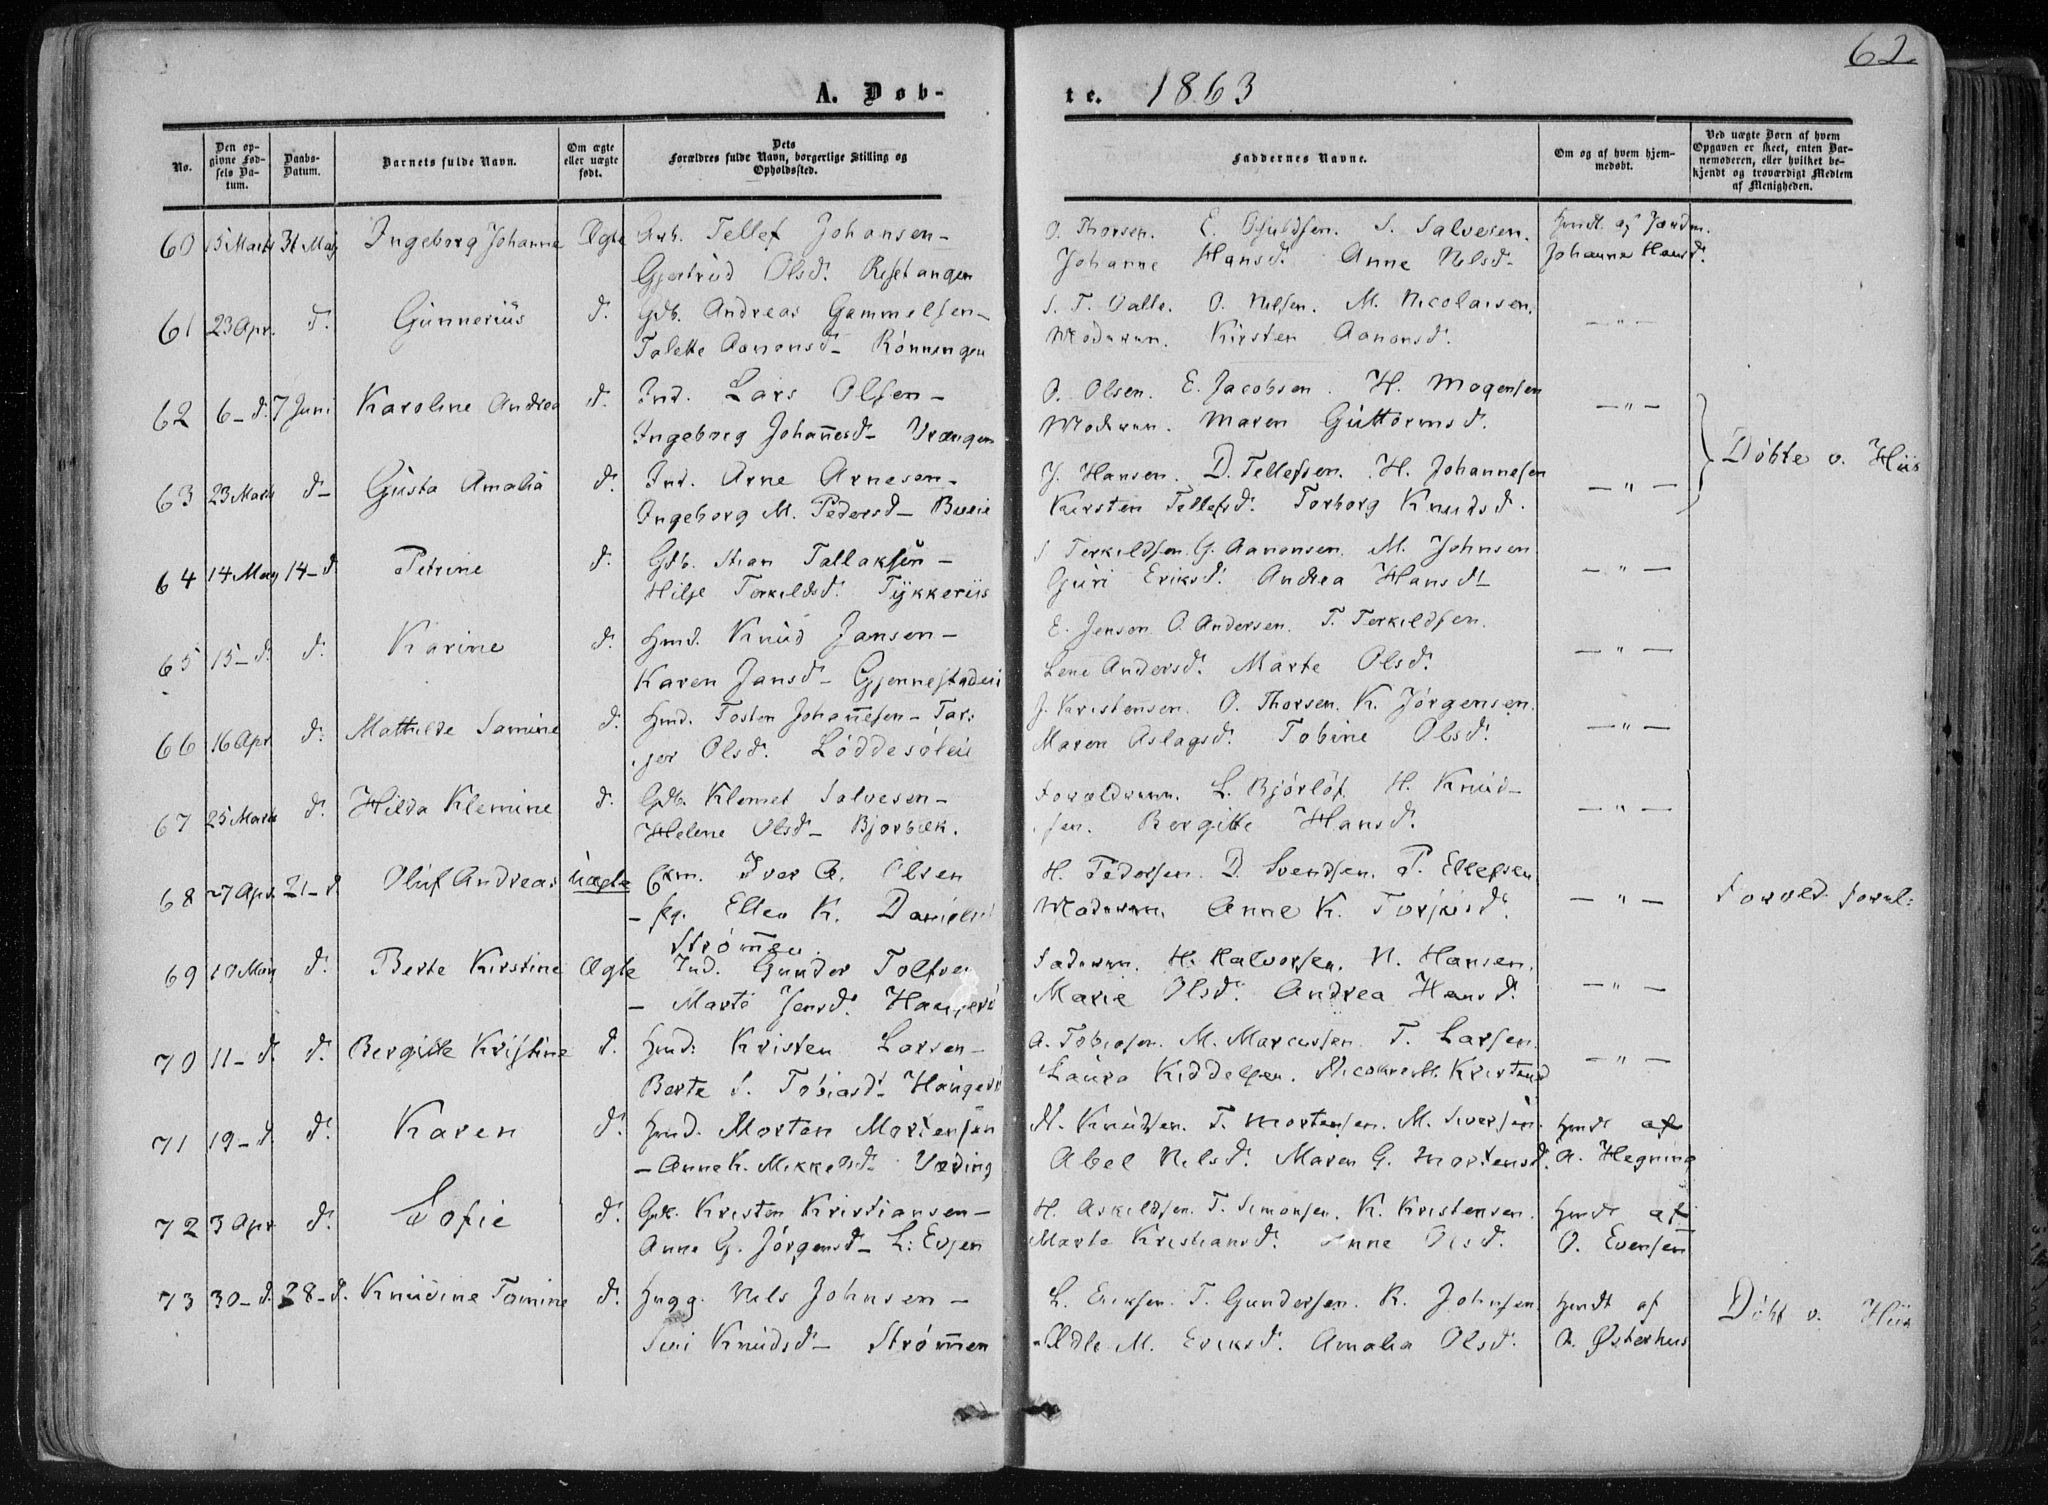 62.
A. Døb-
te. 1863
No.
Den op-
givne Fød-
sels Da-
tum.
Daabs-
Datum.
Barnets fulde Navn.
Om ægte
eller uægte
født.
Dets
Forældres fulde Navn, borgerlige Stilling og
Opholdssted.
Faddernes Navne.
Om og af hvem hjem-
medøbt.
Ved uægte Børn af hvem
Opgaven er skeet, enten Bar-
nemoderen, eller hvilket be-
kjendt og troværdigt Medlem
af Menigheden.
60 15 Marts 31 Maj Ingeborg Johanne Ægte Arb. Tellef Johansen -
Gjertrud Olsd. Refstangen
O. Thorsen. E. S. Salvesen.
Johanne Hansd. Anne Nelsd-
Hmdt. af Jordm.
Johanne Hansd.
61 23 Apr. d. Gunnerius d. Gdb. Andreas Gammelsen -
Talette Aanonsd - Rønningen
S. T. Valle. O. Nilsen. M. Nicolaisen.
Moderen. Kirsten Aanonsd.
— " —
62 6 - d. 7 Juni Karoline Andrea d. Ind. Lars Olsen -
Ingeborg Johannesd - Vrængen
O. Olsen. E. Jacobsen. H. Mogensen
Moderen. Maren Guttormsd.
— " —
63 23 Marts d - Gusta Amalia d. Ind. Arne Arnesen -
Ingeborg M. Pedersd - Bueie
J. Hansen. D. Tellefsen. H. Johannesen
Kirsten Tellefsd. Torborg Knudsd.
— " —
Døbte v. Hiis
64 14 May 14 - d Petrine d. Gdb. Stian Tallaksen -
Hilje Torkildsd. Tykkeriis
S Terkildsen. G. Aanonsen. M. Johnsen
Guri Eriksd. Andrea Hansd -
— " —
65 15 - d. d. Karine d. Hmd. Knud Jansen -
Karen Jansd - Gjennestadeie
E. Jensen O. Andersen. T. Terkildsen.
Lene Andersd. Marte Olsd.
— " —
66 16 Apr d. Mathilde Samine d. Hmd. Tosten Johannesen - Tar-
jer Olsd. Løddesøleie
J. Kristensen. O. Thorsen. K. Jørgensen.
Maren Aslagsd. Tobine Olsd.
— " —
67 25 Marts d. Hilda Klemine d. Gdb. Klemet Salvesen -
Helene Olsd - Bjorbæk.
Forældrene. L. Bjørløf. H. Knud-
sen. Bergitte Hansd.
— " —
68 27 Apr. 21 - d Oluf Andreas Uægte Iver A. Olsen
- Ellen K. Danielsd
Strømmen.
H. Pedersen. D. Svendsen. P. Ellefsen
Moderen. Anne K. Torjusd.
— " —
69 10 May d. Berte Kirstine Ægte Ind. Gunder Tolfsen
- Marte Jensd.
Faderen. H. Halvorsen. N. Hansen.
Marie Olsd. Andrea Hansd.
— " —
70 11 - d. d. Bergitte Kristine d. Hmd. Kristen Larsen -
Berte S. Tobiasd.
A. Tobiasen. M. Marcussen. T. Larsen.
Laura Kiddelsen.
— " —
71 19 - d. d. Karen d. Hmd. Morten Mortensen
- Anne K. Mikkelsd. Væding
N. Knudsen. T. Mortensen. M. Iversen.
Abel Nelsd. Maren G. Mortensd.
Hmdt af
A. Hegning
72 3 Apr d. Sofie d. Gbk. Kristen Kristiansen -
Anne G. Jørgensd - L: Evjen
H. Askildsen. T. Simonsen. K. Kristensen.
Marte Kristiansd. Anne Olsd.
Hmdt af
O. Evensen
73 30 - d. 28 - d. Knudine Tomine d. Hugg. Nels Johnsen -
Siri Knudsd - Strømmen
L. Eriksen. T. Gundersen. R. Johnsen.
Ædle M. Eriksd. Amalia Olsd.
Hmdt af
A. Østerhus
Døbt v. Hiis